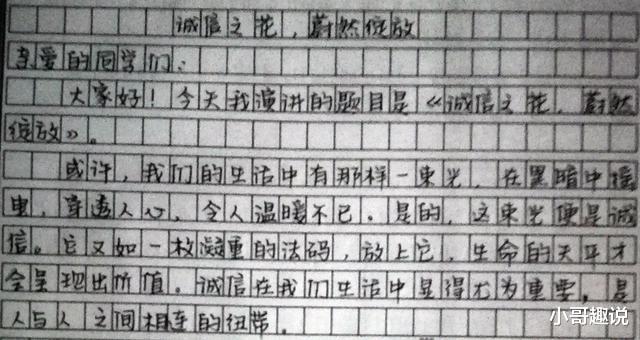 诚信之花，蔚然绽放
亲爱的同学们：
大家好！今天我演讲的题目是《诚信之花，蔚然
绽放》。
或许，我们的生活中有那样一束光，在黑暗中摇
曳，穿透人心，令人温暖不已。是的，这束光便是诚
信。它又如一枚凝重的法码，放上它，生命的天平才
会呈现出价值。诚信在我们生活中显得尤为重要，是
人与人之间相连的纽带。
小哥趣说